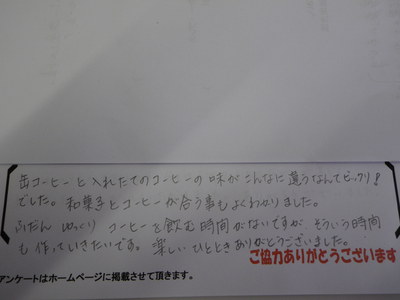 缶コーヒーと入れたてのコーヒーの味がこんなに違うなんてビックリ!
でした。和菓子とコーヒーが合う事もよくわかりました。
ふだん ゆっくり コーヒーを飲む時間がないですが、そういう時間
も作っていきたいです。楽しいひとときありがとうございました。
ご協力ありがとうございます
アンケートはホームページに掲載させて頂きます。